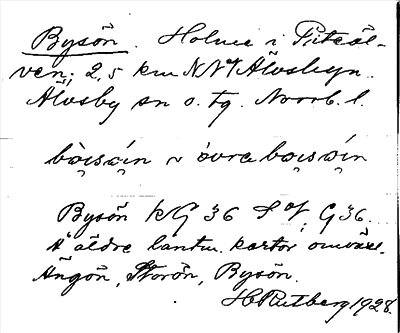 Bysön. Holme i Piteäl-
ven; 2,5 km NNV Älvsbyn.
Älvsby sn o. tg. Norrb. l.
bò̜ısó̜ın ~ óvre bo̜ısó̜ın
Bysön kG 36 S of, G36.
Å äldre lantm. kartor omväxl.
Ängön, Storön, Bysön.
H Rutberg 1928.